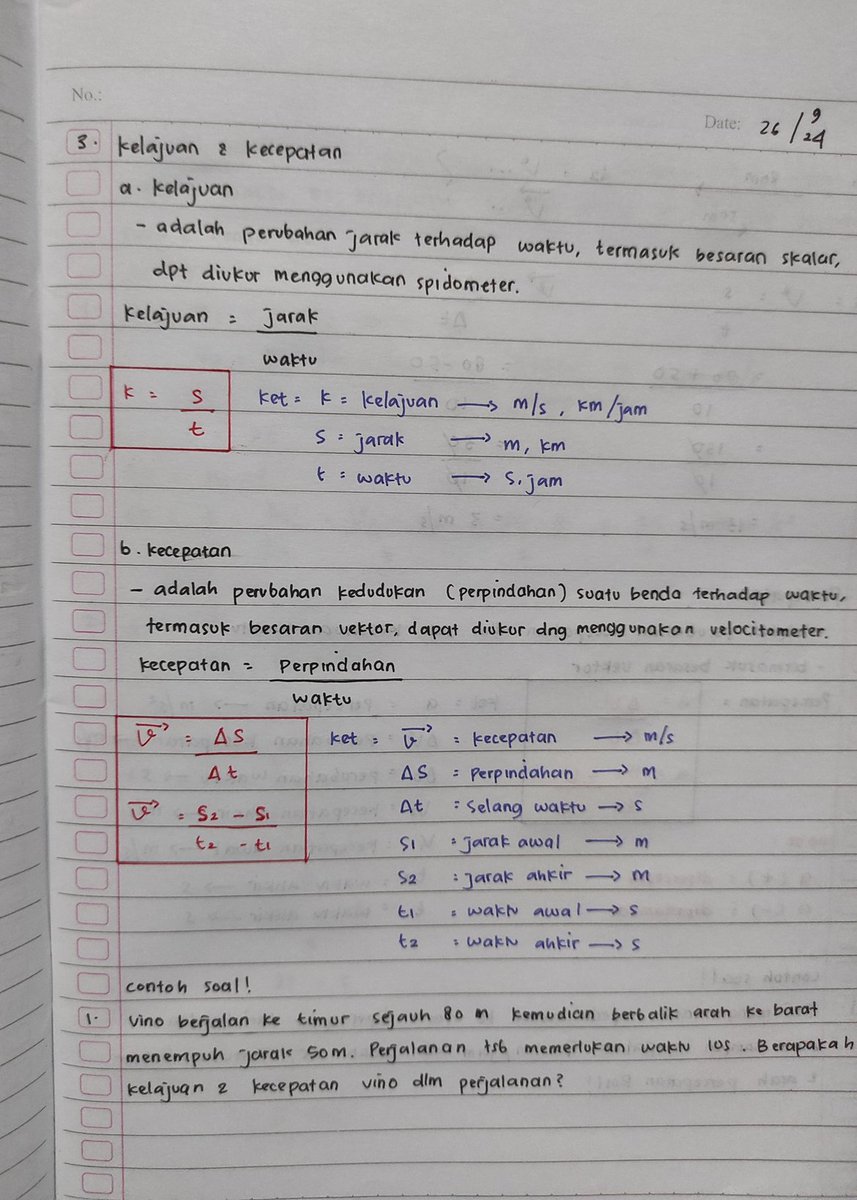 No.:
Date: 26/9/24
3. Kelajuan & kecepatan
a. Kelajuan
- adalah perubahan jarak terhadap waktu, termasuk besaran skalar,
dpt diukur menggunakan spidometer.
Kelajuan = jarak
waktu
K = S
t
Ket = K = kelajuan → m/s, km/jam
S = jarak → m, km
t = waktu → s, jam
b. kecepatan
- adalah perubahan kedudukan (perpindahan) suatu benda terhadap waktu,
termasuk besaran vektor, dapat diukur dng menggunakan velocitometer.
kecepatan = Perpindahan
waktu
v⃗ = ΔS
Δt
v⃗ = S₂ - S₁
t₂ - t₁
ket = v⃗ = kecepatan → m/s
ΔS = Perpindahan → m
Δt = Selang waktu → s
S₁ = jarak awal → m
S₂ = jarak ahkir → m
t₁ = waktu awal → s
t₂ = waktu ahkir → s
contoh soal!
1. Vino berjalan ke timur sejauh 80 m kemudian berbalik arah ke barat
menempuh jarak 50m. Perjalanan tsb memerlukan waktu 10s. Berapakah
kelajuan & kecepatan vino dlm perjalanan?